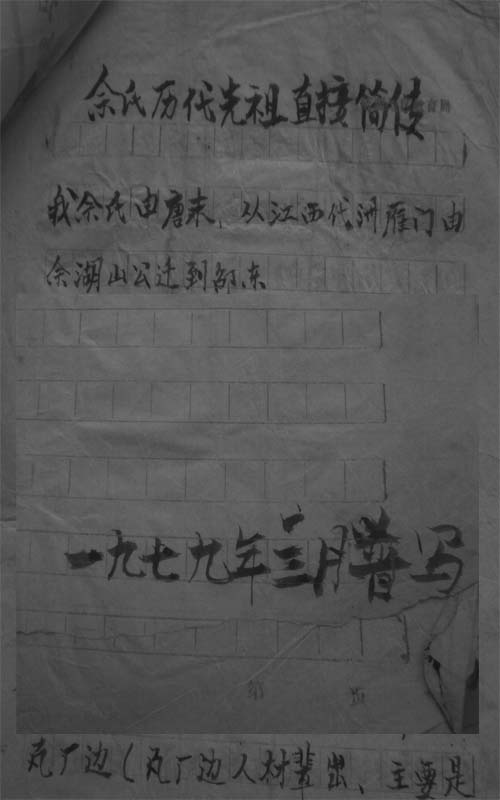 余氏历代先祖直接简传
我余氏由唐末、从江西代洲雁门由
余湖山公迁到邵东
一九七九年三月普写
第 页
瓦厂边（瓦厂边人材辈出、主要是